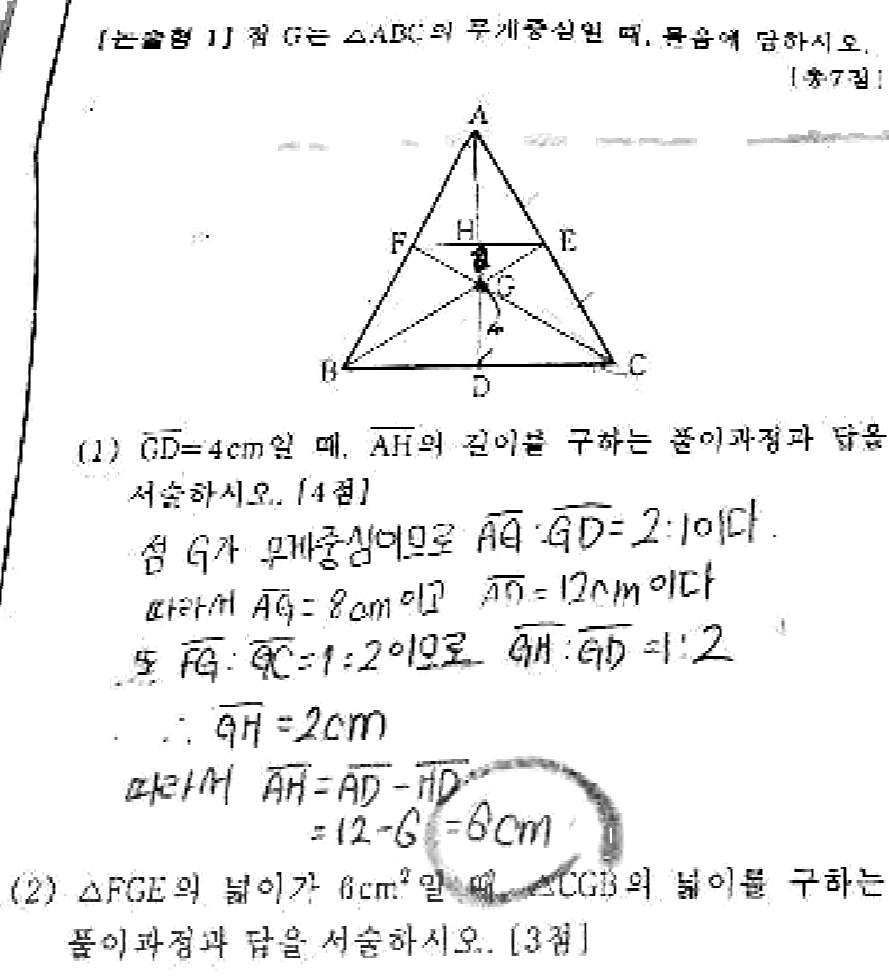 [논술형 1] 점 G는 △ABC의 무게중심일 때, 물음에 답하시오.
[총7점]
A
F H E
G
4
B D C
(1) GD=4cm일 때, AH의 길이를 구하는 풀이과정과 답을
서술하시오. [4점]
점 G가 무게중심이므로 AG:GD=2:1이다.
따라서 AG=8cm이고 AD=12cm이다
또 FG:GC=1:2이므로 GH:GD=1:2
∴ GH=2cm
따라서 AH=AD-HD
=12-6=6cm
(2) △FGE의 넓이가 6cm²일 때, △CGB의 넓이를 구하는
풀이과정과 답을 서술하시오. [3점]